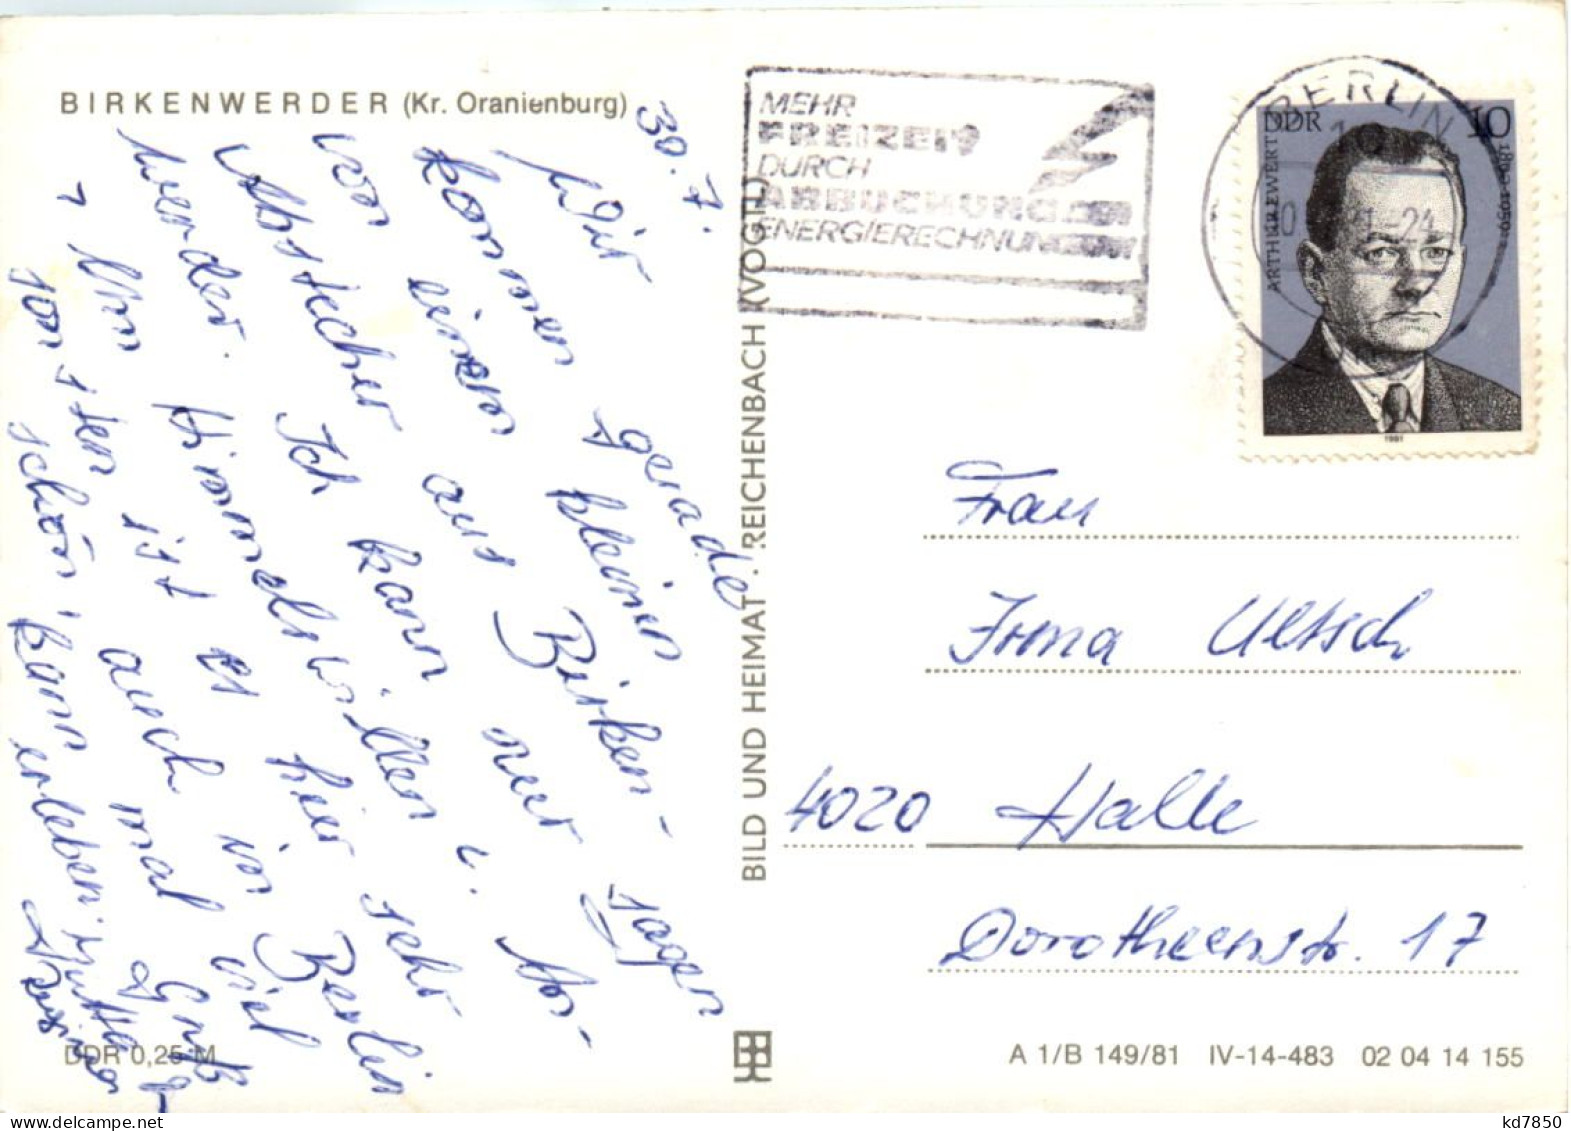 BIRKENWERDER (Kr. Oranienburg)
30.7.
Wir gerade
kommen kleinen
von einem aus Birken-
Abstecher kann nur sagen
werder. Ich
Himmelswillen u. An-
ist es hier sehr
schön, auch in Berlin
kann mal viel
erleben. Gruß
Jutta
DDR 0,25 M
BILD UND HEIMAT · REICHENBACH (VOGTL)
MEHR
FREIZEIT
DURCH
ABBUCHUNG DER
ENERGIERECHNUNGEN
BERLIN
DDR 10
ARTHUR EWERT 1890-1959
1981
Frau
Irma Ultsch
4020 Halle
Dorotheenstr. 17
A 1/B 149/81 IV-14-483 02 04 14 155
kd7850